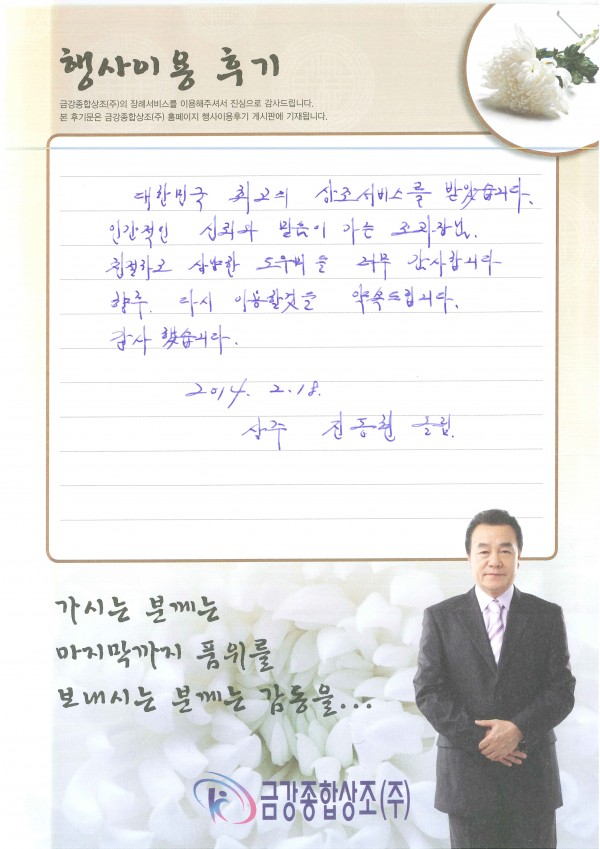 행사이용 후기
금강종합상조(주)의 장례서비스를 이용해주셔서 진심으로 감사드립니다.
본 후기문은 금강종합상조(주) 홈페이지 행사이용후기 게시판에 기재됩니다.
대한민국 최고의 상조서비스를 받았습니다.
인간적인 신뢰와 믿음이 가는 조과장님.
친절하고 상냥한 도우미들 너무 감사합니다
향후. 다시 이용할것을 약속드립니다.
감사 했습니다.
2014. 2. 18.
상주 진동현 올림.
가시는 분께는
마지막까지 품위를
보내시는 분께는 감동을...
금강종합상조(주)